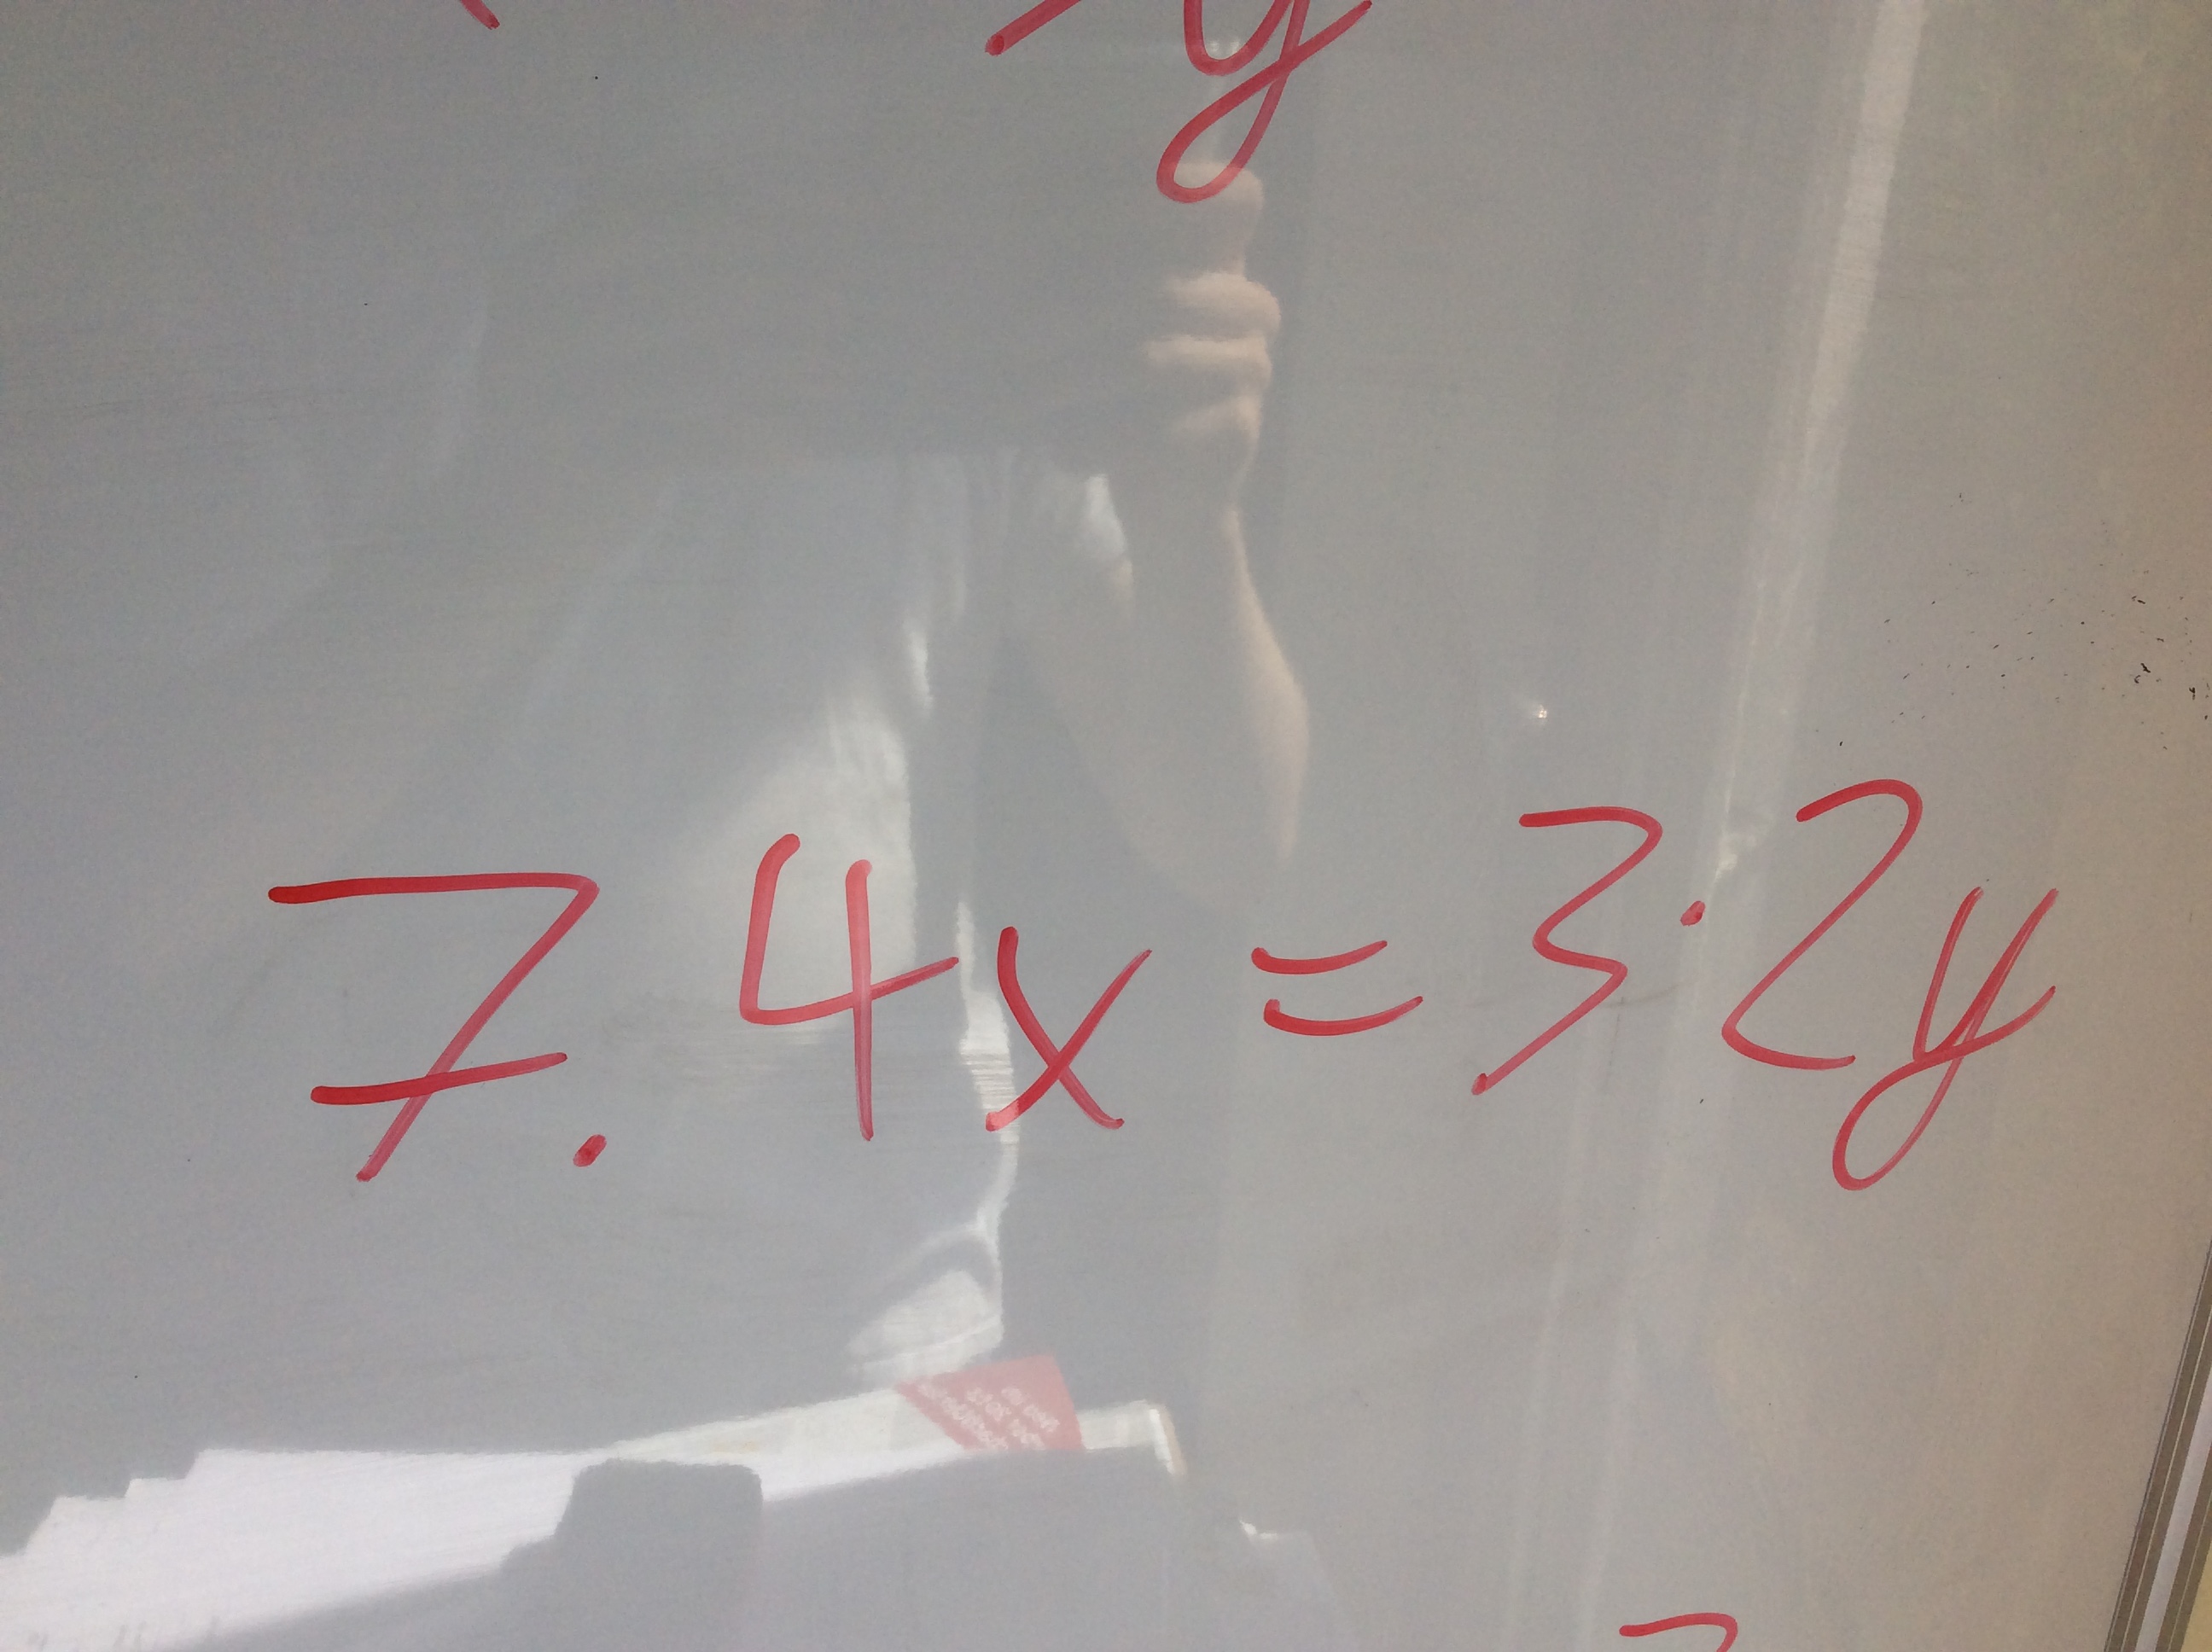 y
7.4x = 3.2y